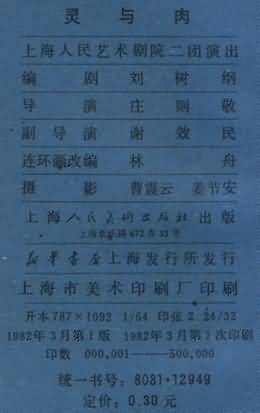 灵与肉
上海人民艺术剧院二团演出
编 剧 刘 树 纲
导 演 庄 则 敬
副 导 演 谢 效 民
连环画改编 林 舟
摄 影 曹震云 姜节安
上海人民美术出版社 出版
上海长乐路672弄33号
新华书店 上海发行所发行
上海市美术印刷厂印刷
开本 787×1092 1/64 印张 2 24/32
1982年3月第1版 1982年3月第1次印刷
印数 000,001——500,000
统一书号: 8081·12949
定价: 0.30 元